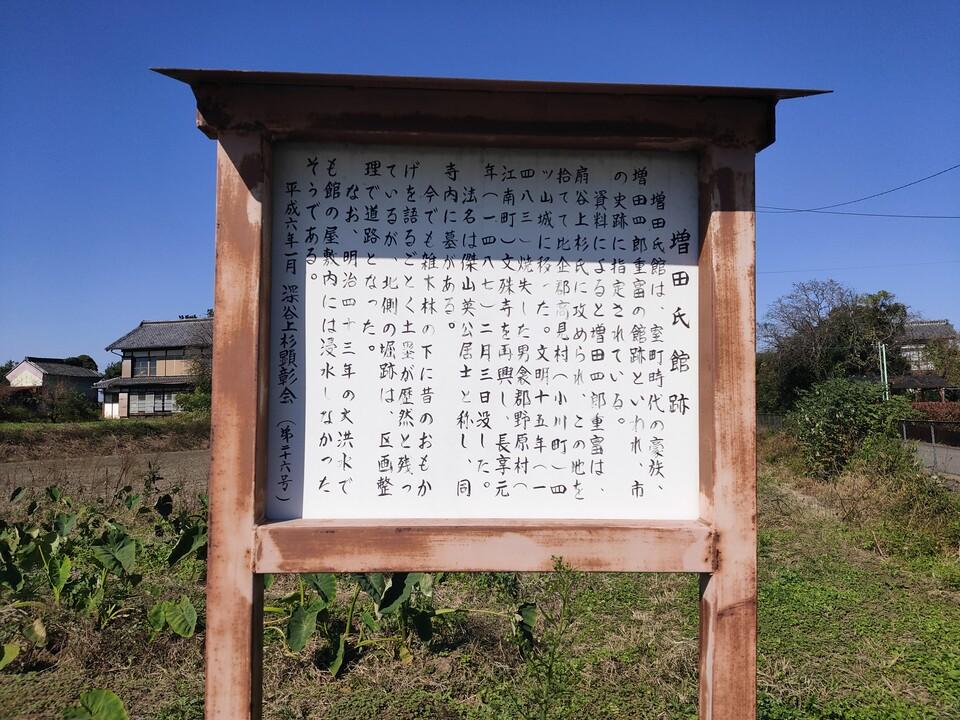 増田氏館跡
増田氏館は、室町時代の豪族、
増田四郎重富の館跡といわれ、市
の史跡に指定されている。
資料によると増田四郎重富は、
扇谷上杉氏に攻められ、この地を
拾てて比企郡高見村(小川町)四
ッ山城に移った。文明十五年(一
四八三)焼失した男衾郡野原村(
江南町)文殊寺を再興し、長享元
年(一四八七)二月三日没した。
法名は傑山英公居士と称し、同
寺内に墓がある。
今でも雑木林の下に昔のおもか
げを語るごとく土塁が歴然と残っ
ているが、北側の堀跡は、区画整
理で道路となった。
なお、明治四十三年の大洪水で
も館の屋敷内には浸水しなかった
そうである。
平成六年一月 深谷上杉顕彰会 (第二十六号)